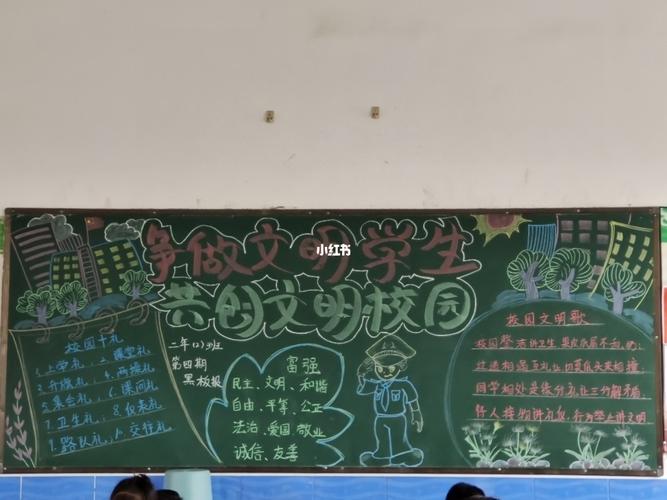 争做文明学生
小红书
共创文明校园
校园十礼
1.上学礼、2.课堂礼
3.升旗礼、4.两操礼
5.集会礼、6.课间礼
7.卫生礼、8.仪表礼
9.路队礼、10.交往礼
二年(2)班
第四期
黑板报
富强
民主、文明、和谐
自由、平等、公正
法治、爱国、敬业
诚信、友善
校园文明歌
校园整洁讲卫生 果皮纸屑不乱扔
过道相遇互礼让 切莫低头来相撞
同学相处是缘分 礼让三分解矛盾
待人接物讲礼仪，行为举止讲文明